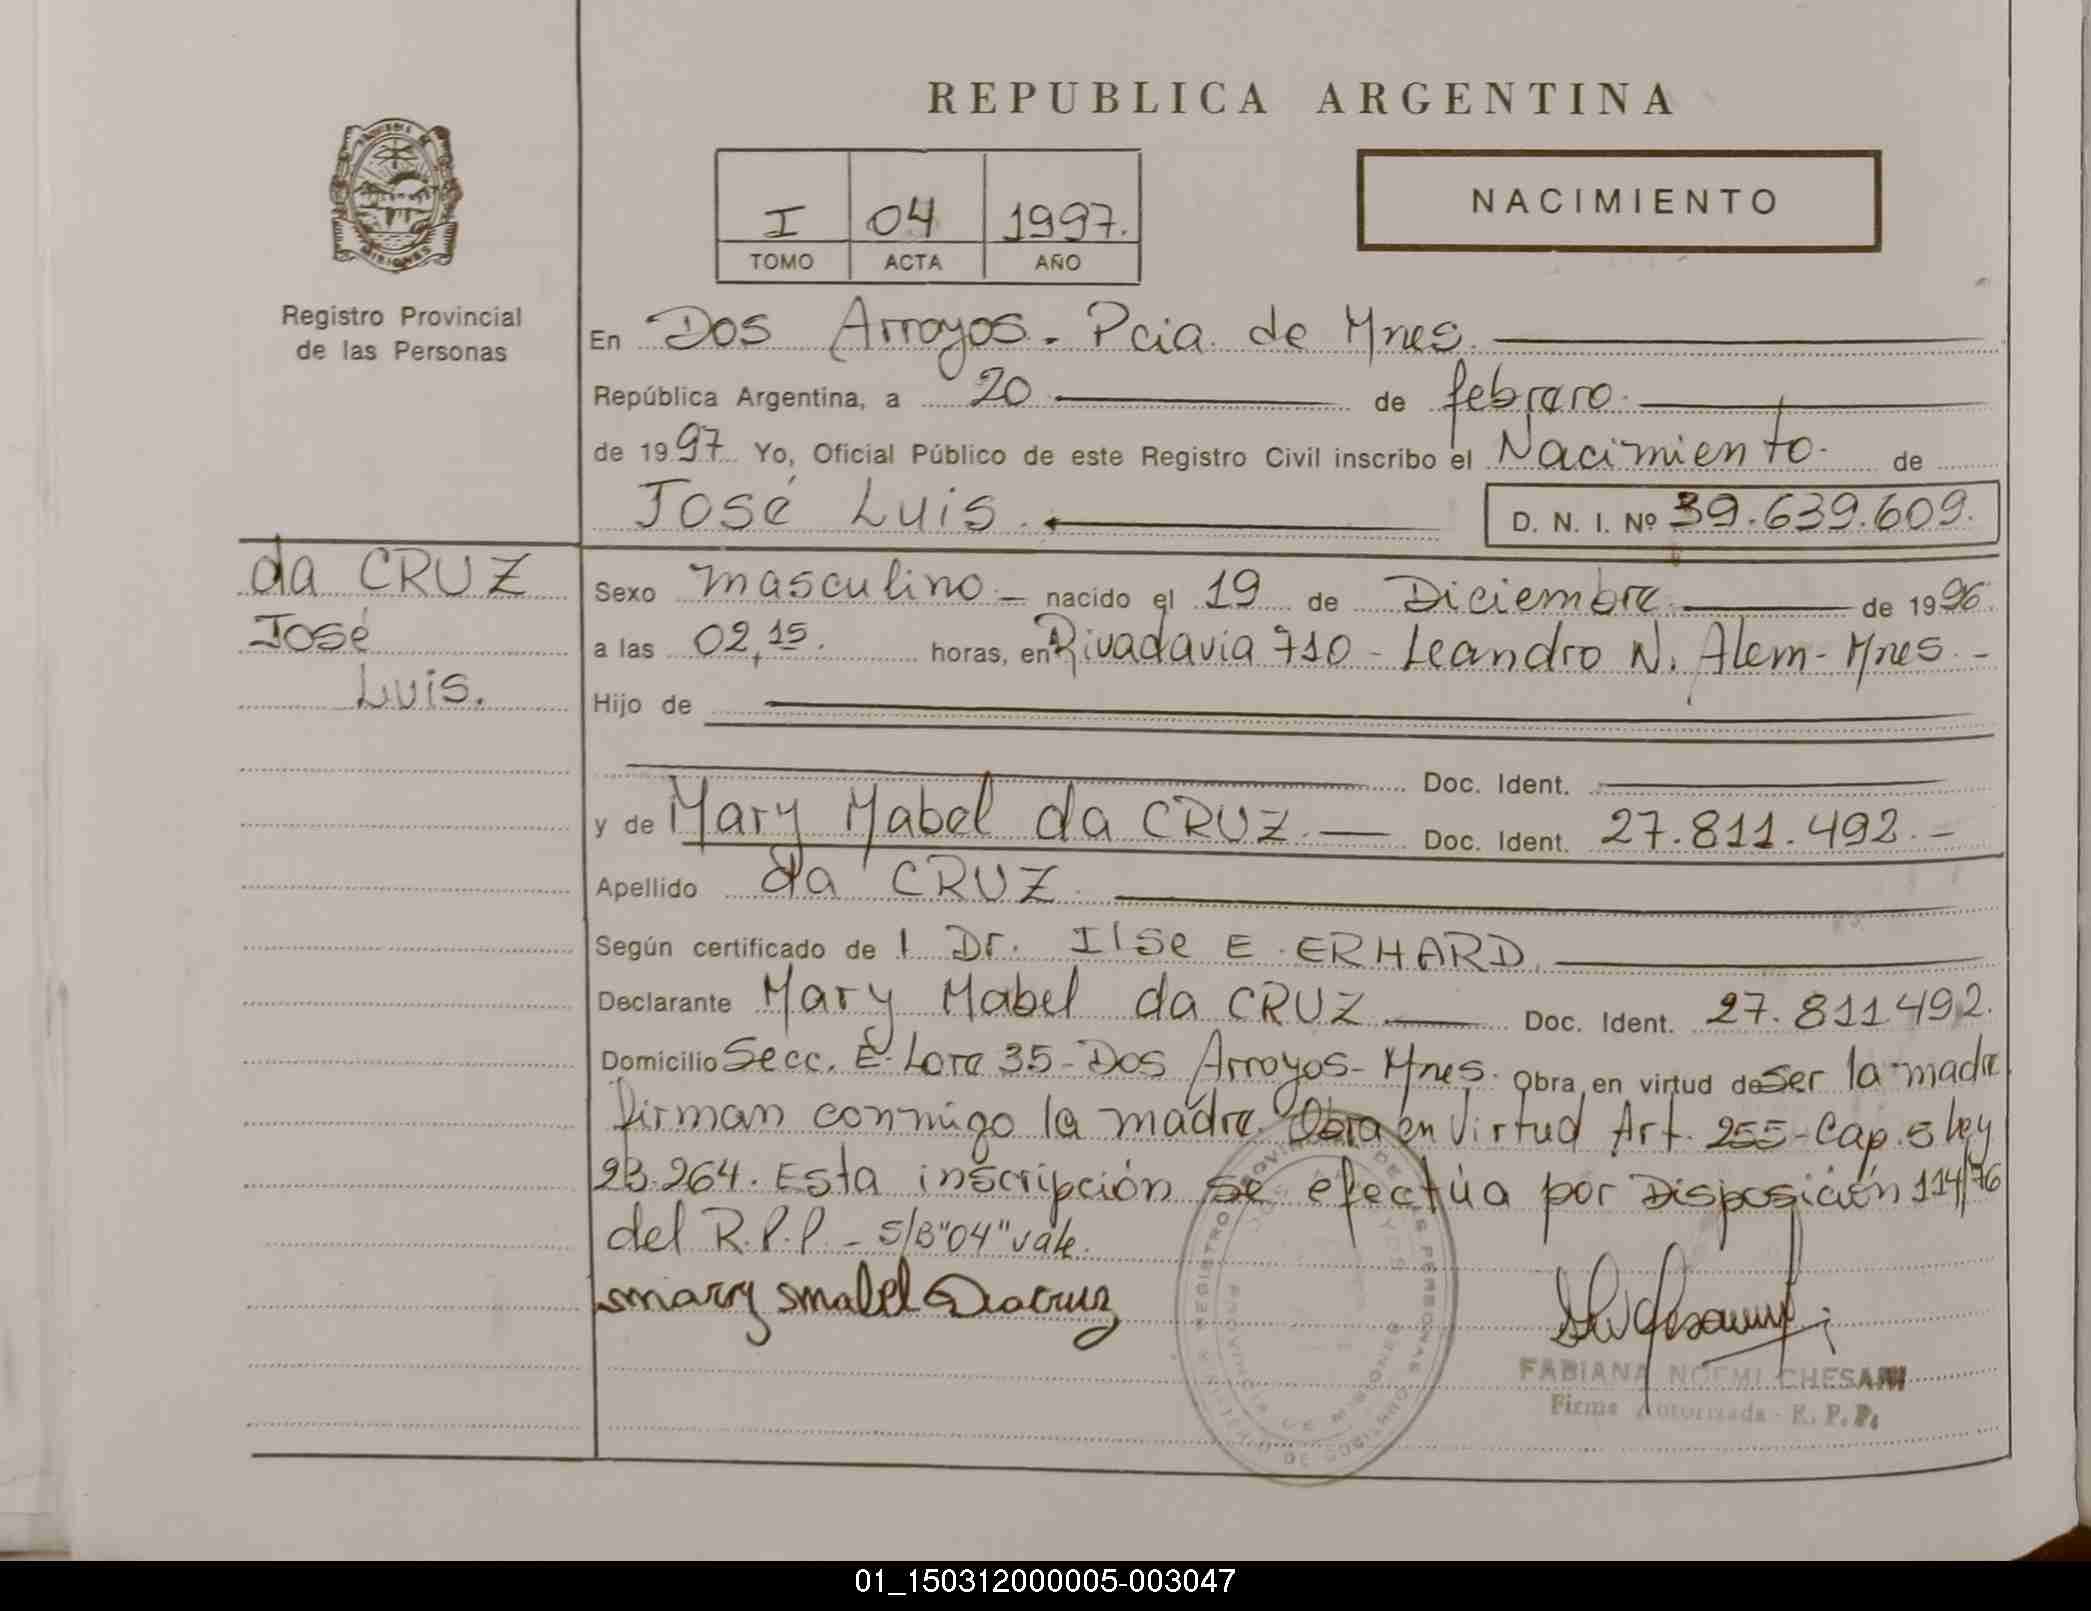 REPUBLICA ARGENTINA
NACIMIENTO
I 04 1997.
TOMO ACTA AÑO
MISIONES
Registro Provincial
de las Personas
En Dos Arroyos - Pcia. de Mnes.
República Argentina, a 20 de febrero.
de 1997 Yo, Oficial Público de este Registro Civil inscribo el Nacimiento. de
José Luis. D. N. I. Nº 39.639.609.
da CRUZ
José
Luis.
Sexo masculino - nacido el 19 de Diciembre de 1996.
a las 02,15. horas, en Rivadavia 710 - Leandro N. Alem - Mnes. -
Hijo de
Doc. Ident.
y de Mary Mabel da CRUZ. Doc. Ident. 27.811.492. -
Apellido da CRUZ.
Según certificado de l Dr. Ilse E. ERHARD.
Declarante Mary Mabel da CRUZ Doc. Ident. 27.811492.
Domicilio Secc. E. Lote 35 - Dos Arroyos - Mnes. Obra en virtud de ser la madre
firman conmigo la madre. Obra en Virtud Art. 255 - Cap. 5 ley
23.264. Esta inscripción se efectúa por Disposición 114/76
del R.P.P. - S/B "04" vale.
mary mabel Dacruz
FABIANA NOEMI CHESANI
Firma Autorizada - R. P. P.
01_150312000005-003047